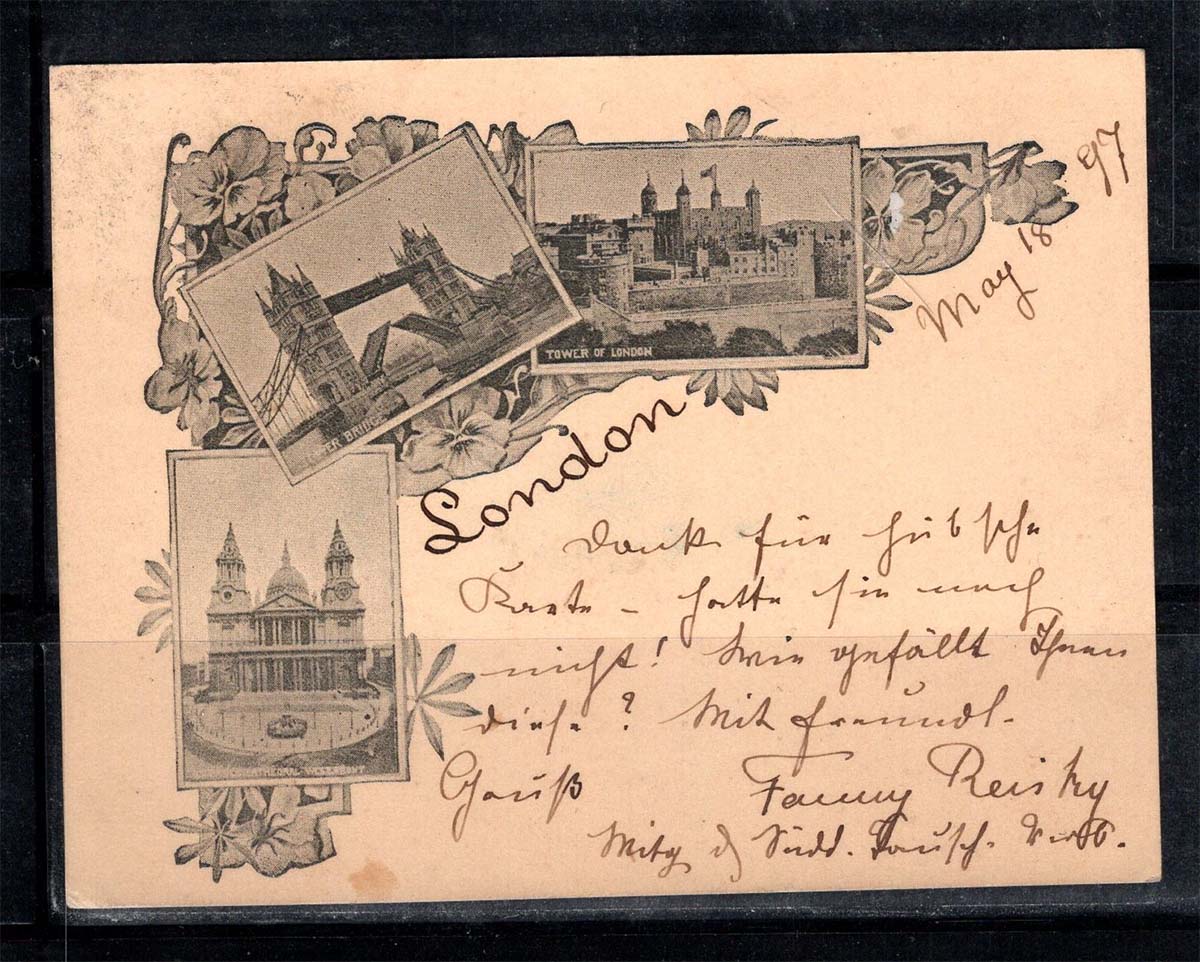 TOWER OF LONDON
ER BRIDG
CATHEDRAL
London
May 18 97
Dank für hübsche
Karte – hatte sie noch
nicht! Wie gefällt Ihnen
diese? Mit freundl.
Gruß Fanny
Mitg d Südd. Tausch. Verb.